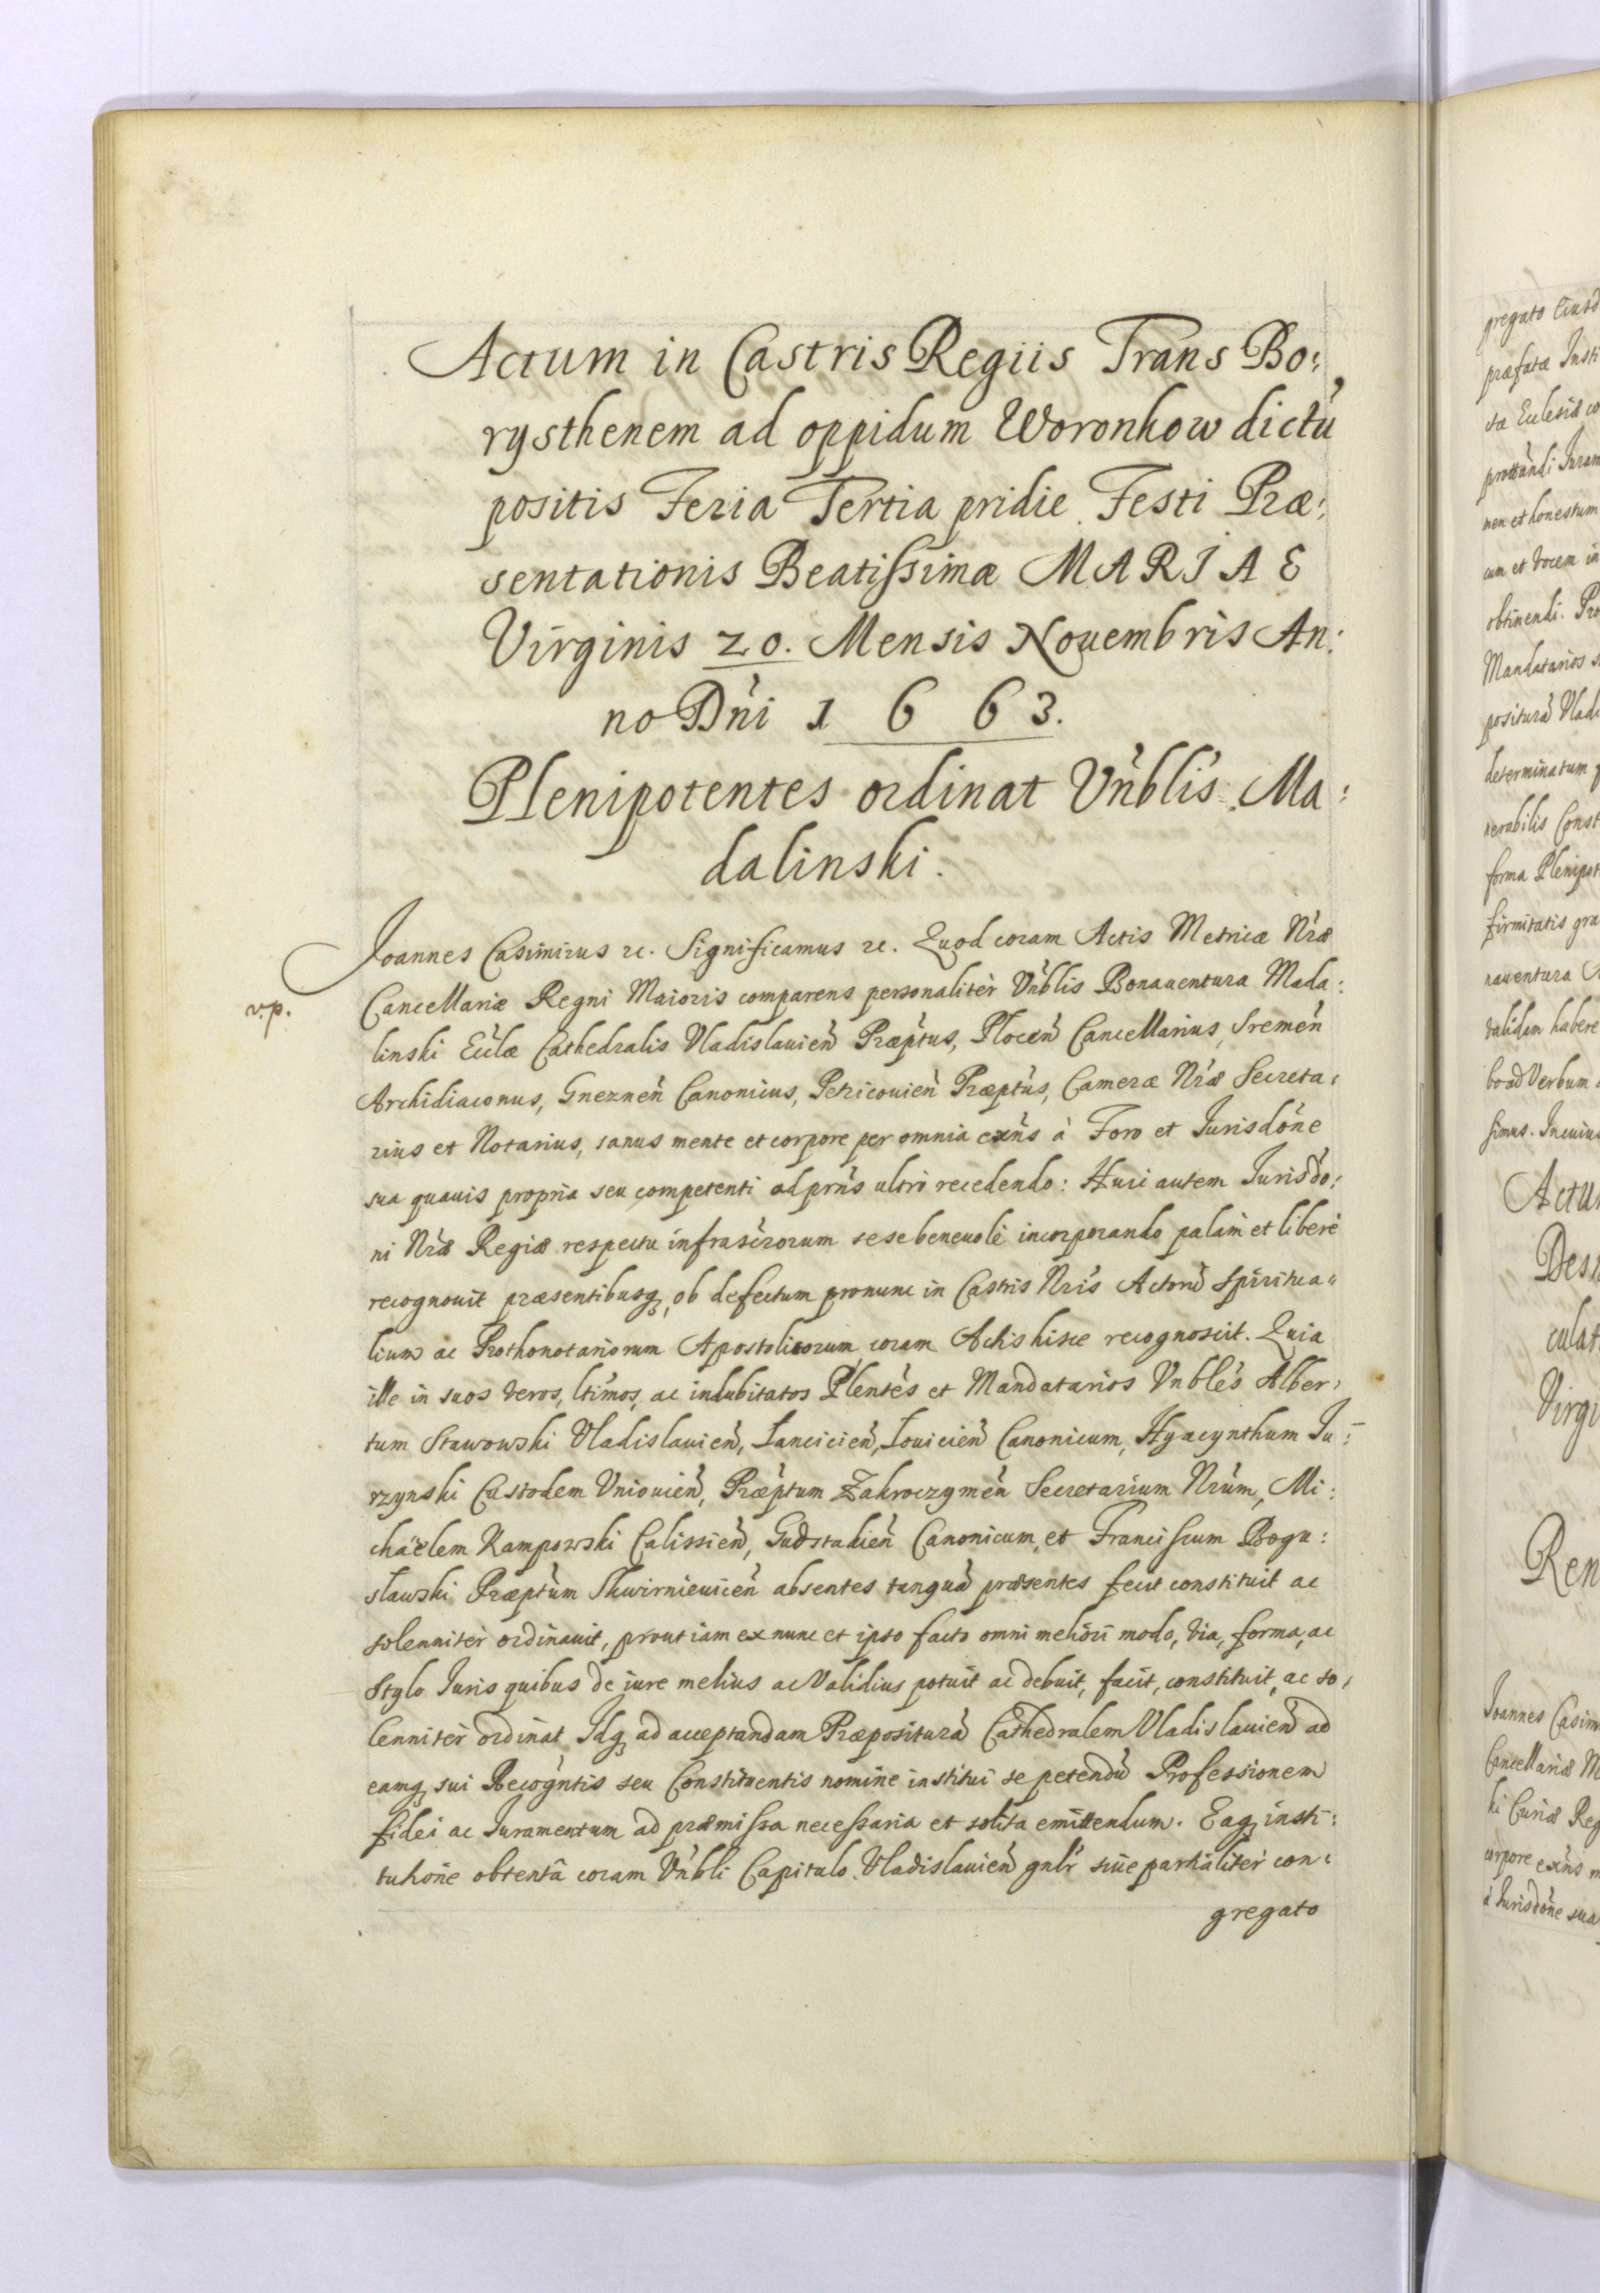 Actum in Castris Regiis Trans Bo:
rysthenem ad oppidum Woronkow dictũ
positis Feria Tertia pridie Festi Præ:
sentationis Beatissimæ MARIAE
Virginis 20. Mensis Nouembris An:
no Dñi 1663.
Plenipotentes ordinat Vñblis Ma:
dalinski.
Joannes Casimirus rc. Significamus rc. Quod coram Actis Metricæ Nræ
v.p.
Cancellariæ Regni Maioris comparens personalitèr Vñblis Bonauentura Mada:
linski Ecclæ Cathedralis Vladislauieñ Præptus, Ploceñ Cancellarius, Sremeñ
Archidiaconus, Gnezneñ Canonicus, Petricouieñ Præptus, Cameræ Nræ Secreta:
rius et Notarius, sanus mente et corpore per omnia exñs à Foro et Jurisdõne
sua quauis propria seu competenti ad prñs ultrò recedendo: Huic autem Jurisdõ:
ni Nræ Regiæ respectu infrascrorum sese beneuolè incorporando palàm et liberè
recognouit præsentibusq, ob defectum pronunc in Castris Nris Actorũ spiritua:
lium ac Prothonotariorum Apostolicorum coram Actis hisce recognoscit. Quia
ille in suos veros, ltimos, ac indubitatos Plentes et Mandatarios Vnbles Alber:
tum Stawowski Vladislauieñ, Lancicieñ, Louicieñ Canonicum, Hyacynthum Ju:
rzynski Custodem Vniouieñ, Præptum Zakroczymeñ Secretarium Nrum, Mi:
chäelem Kampowski Calissieñ, Gudstadieñ Canonicum, et Franciscum Bogu:
slawski Præptum Skwirnieuiceñ absentes tanquã præsentes fecit constituit ac
solennitèr ordinauit, prout iam ex nunc et ipso facto omni meliori modo, via, forma, ac
stylo Juris quibus de iure melius ac Validius potuit ac debuit, facit, constituit, ac so:
lennitèr ordinat Idq ad acceptandam Præpositurã Cathedralem Vladislauieñ ad
eamq sui Recogntis seu Constituentis nomine institui se petendũ Professionem
fidei ac Juramentum ad præmissa necessaria et solita emittendum. Eaq insti:
tutione obtentâ coram Vñbli Capitulo Vladislauieñ gnlr siue partialitèr con:
gregato
gregato
præfatæ
Mandatarios
positurã
determinatum
forma
firmitatis
nauentura
validem habere
simus.
Joannes